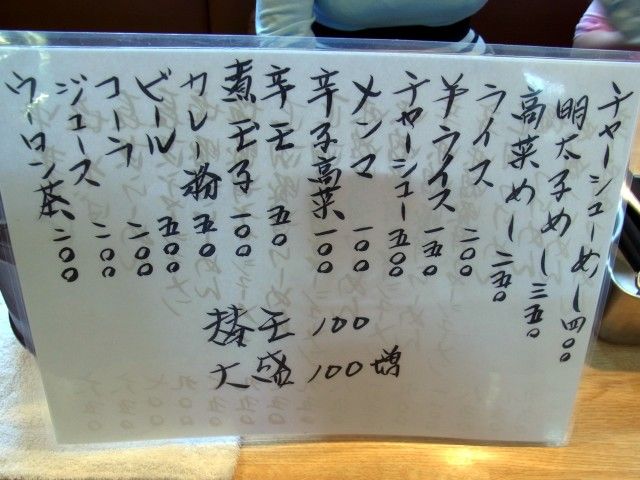 チャーシューめし 四〇〇
明太子めし 三五〇
高菜めし 二五〇
ライス 二〇〇
半ライス 一五〇
チャーシュー 五〇〇
メンマ 一〇〇
辛子高菜 一〇〇
辛玉 五〇
煮玉子 一〇〇
カレー粉 五〇
ビール 五〇〇
コーラ 二〇〇
ジュース 二〇〇
ウーロン茶 二〇〇
替玉 100
大盛 100増